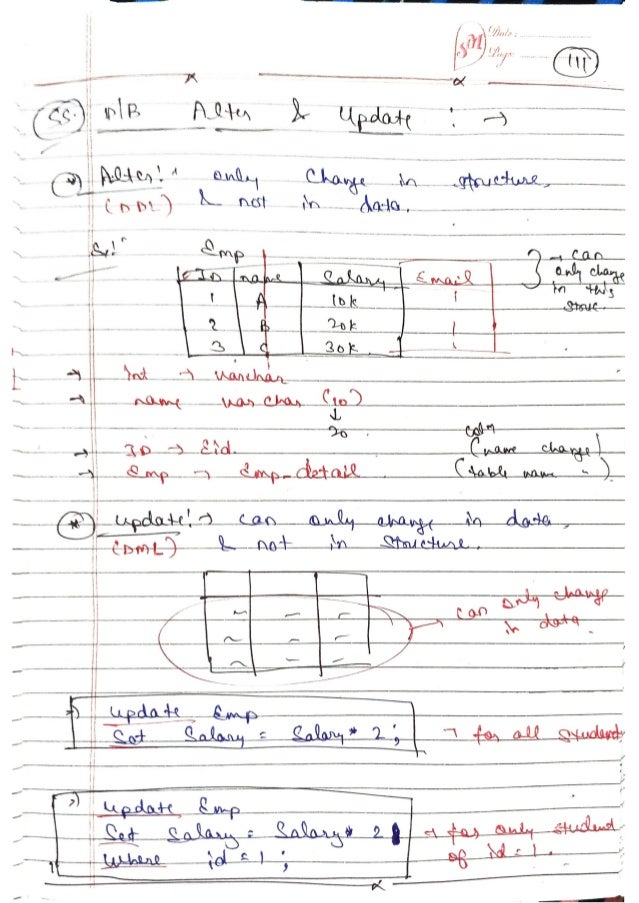 SM Date:
Page
111
55. D/B Alter & Update : →
*) Alter:- only change in structure,
(DDL) & not in data.
Ex:- Emp
ID name Salary Email
1 A 10k
2 B 20k
3 C 30k
} → can only change in this struc.
→ Int → varchar
→ name varchar (10)
↓
20
→ ID → Eid. (colm name change)
→ Emp → Emp-detail (table name ")
* Update:→ can only change in data,
(DML) & not in structure.
→ can only change in data.
→) Update Emp
Set Salary = Salary * 2; → for all student
→) Update Emp
Set Salary = Salary * 2 → for only student
Where id = 1; of id = 1.